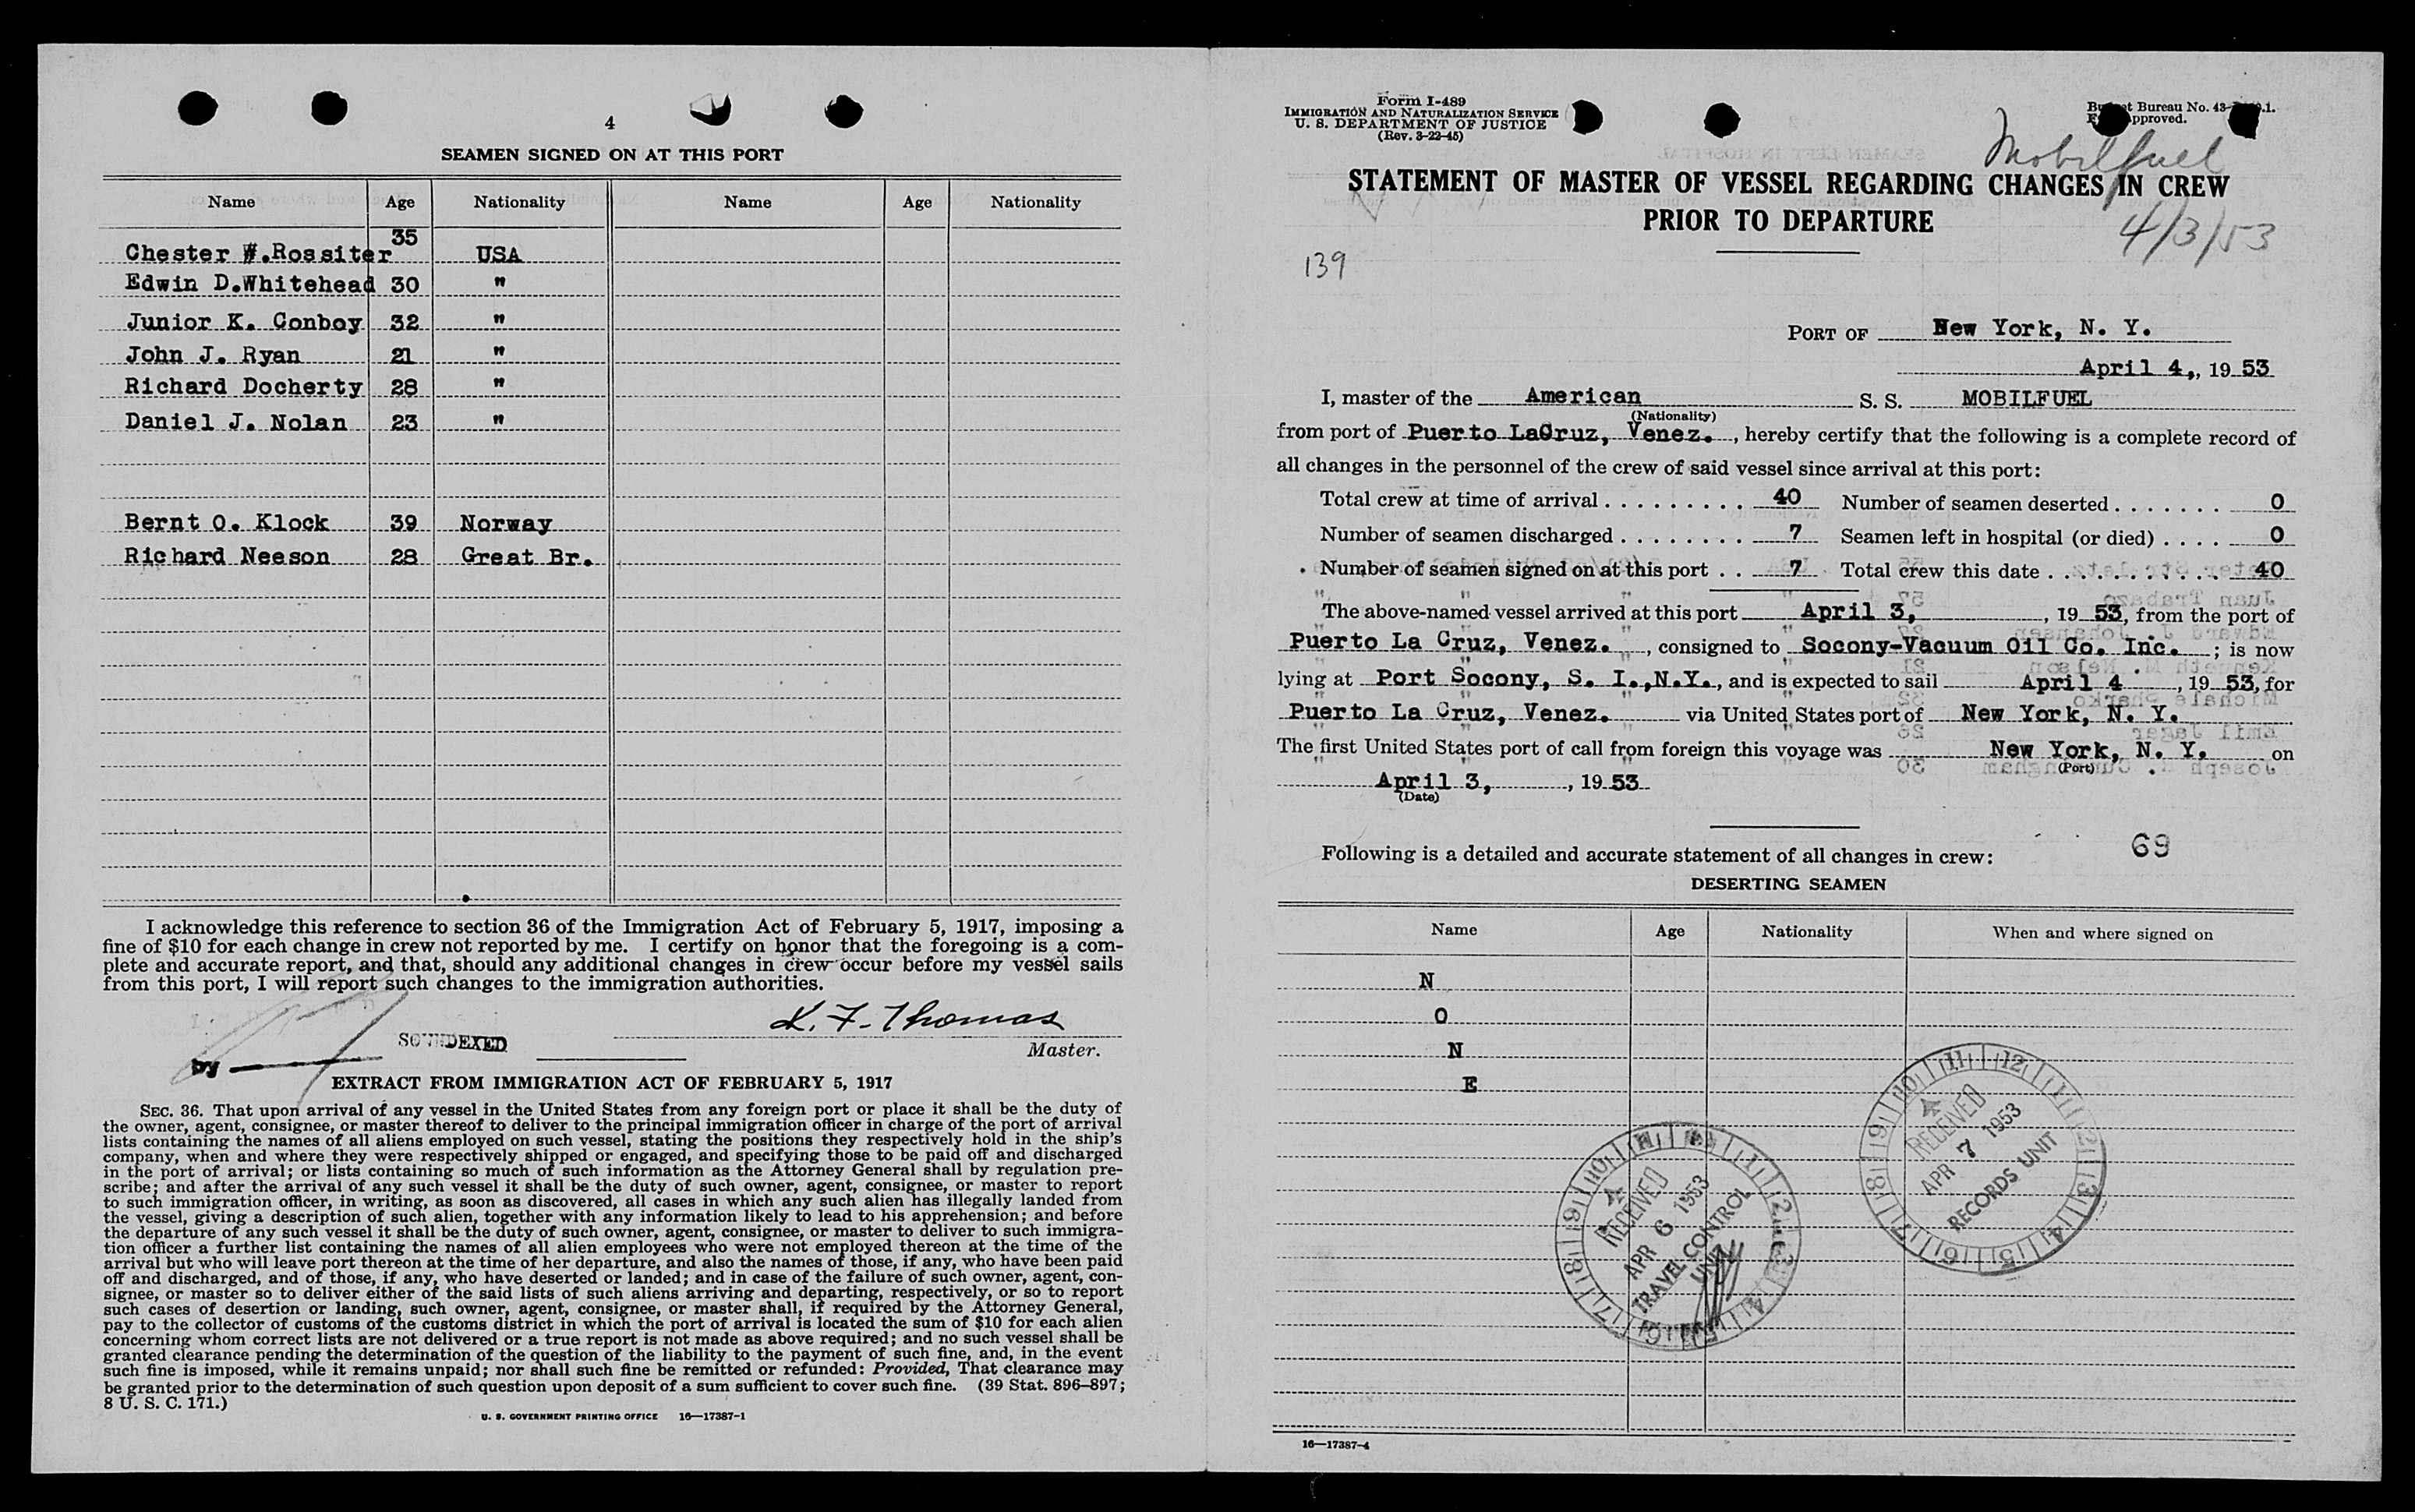 4
SEAMEN SIGNED ON AT THIS PORT
Name Age Nationality Name Age Nationality
Chester W.Rossiter 35 USA
Edwin D.Whitehead 30 "
Junior K. Conboy 32 "
John J. Ryan 21 "
Richard Docherty 28 "
Daniel J. Nolan 23 "
Bernt O. Klock 39 Norway
Richard Neeson 28 Great Br.
I acknowledge this reference to section 36 of the Immigration Act of February 5, 1917, imposing a
fine of $10 for each change in crew not reported by me. I certify on honor that the foregoing is a com-
plete and accurate report, and that, should any additional changes in crew occur before my vessel sails
from this port, I will report such changes to the immigration authorities.
K. F. Thomas
SOUNDEXED
Master.
by
EXTRACT FROM IMMIGRATION ACT OF FEBRUARY 5, 1917
SEC. 36. That upon arrival of any vessel in the United States from any foreign port or place it shall be the duty of
the owner, agent, consignee, or master thereof to deliver to the principal immigration officer in charge of the port of arrival
lists containing the names of all aliens employed on such vessel, stating the positions they respectively hold in the ship's
company, when and where they were respectively shipped or engaged, and specifying those to be paid off and discharged
in the port of arrival; or lists containing so much of such information as the Attorney General shall by regulation pre-
scribe; and after the arrival of any such vessel it shall be the duty of such owner, agent, consignee, or master to report
to such immigration officer, in writing, as soon as discovered, all cases in which any such alien has illegally landed from
the vessel, giving a description of such alien, together with any information likely to lead to his apprehension; and before
the departure of any such vessel it shall be the duty of such owner, agent, consignee, or master to deliver to such immigra-
tion officer a further list containing the names of all alien employees who were not employed thereon at the time of the
arrival but who will leave port thereon at the time of her departure, and also the names of those, if any, who have been paid
off and discharged, and of those, if any, who have deserted or landed; and in case of the failure of such owner, agent, con-
signee, or master so to deliver either of the said lists of such aliens arriving and departing, respectively, or so to report
such cases of desertion or landing, such owner, agent, consignee, or master shall, if required by the Attorney General,
pay to the collector of customs of the customs district in which the port of arrival is located the sum of $10 for each alien
concerning whom correct lists are not delivered or a true report is not made as above required; and no such vessel shall be
granted clearance pending the determination of the question of the liability to the payment of such fine, and, in the event
such fine is imposed, while it remains unpaid; nor shall such fine be remitted or refunded: Provided, That clearance may
be granted prior to the determination of such question upon deposit of a sum sufficient to cover such fine. (39 Stat. 896–897;
8 U. S. C. 171.)
U. S. GOVERNMENT PRINTING OFFICE 16—17387-1
Form I-489
IMMIGRATION AND NATURALIZATION SERVICE
U. S. DEPARTMENT OF JUSTICE
(Rev. 3-22-45)
Bureau No. 43-
Approved.
Mobilfuel
STATEMENT OF MASTER OF VESSEL REGARDING CHANGES IN CREW
PRIOR TO DEPARTURE
4/3/53
139
PORT OF New York, N. Y.
April 4,, 19 53
I, master of the American S. S. MOBILFUEL
(Nationality)
from port of Puerto LaCruz, Venez. , hereby certify that the following is a complete record of
all changes in the personnel of the crew of said vessel since arrival at this port:
Total crew at time of arrival . . . . . . . . . 40 Number of seamen deserted . . . . . . . 0
Number of seamen discharged . . . . . . . . 7 Seamen left in hospital (or died) . . . . 0
Number of seamen signed on at this port . . 7 Total crew this date . . . . . . . . . . . 40
The above-named vessel arrived at this port April 3, , 19 53, from the port of
Puerto La Cruz, Venez. , consigned to Socony-Vacuum Oil Co. Inc. ; is now
lying at Port Socony, S. I.,N.Y., and is expected to sail April 4 , 19 53, for
Puerto La Cruz, Venez. via United States port of New York, N. Y.
The first United States port of call from foreign this voyage was New York, N. Y. on
(Port)
April 3, , 19 53
(Date)
69
Following is a detailed and accurate statement of all changes in crew:
DESERTING SEAMEN
Name Age Nationality When and where signed on
N
O
N
E
RECEIVED
APR 6 1953
TRAVEL CONTROL
UNIT
RECEIVED
APR 7 1953
RECORDS UNIT
16—17387-4